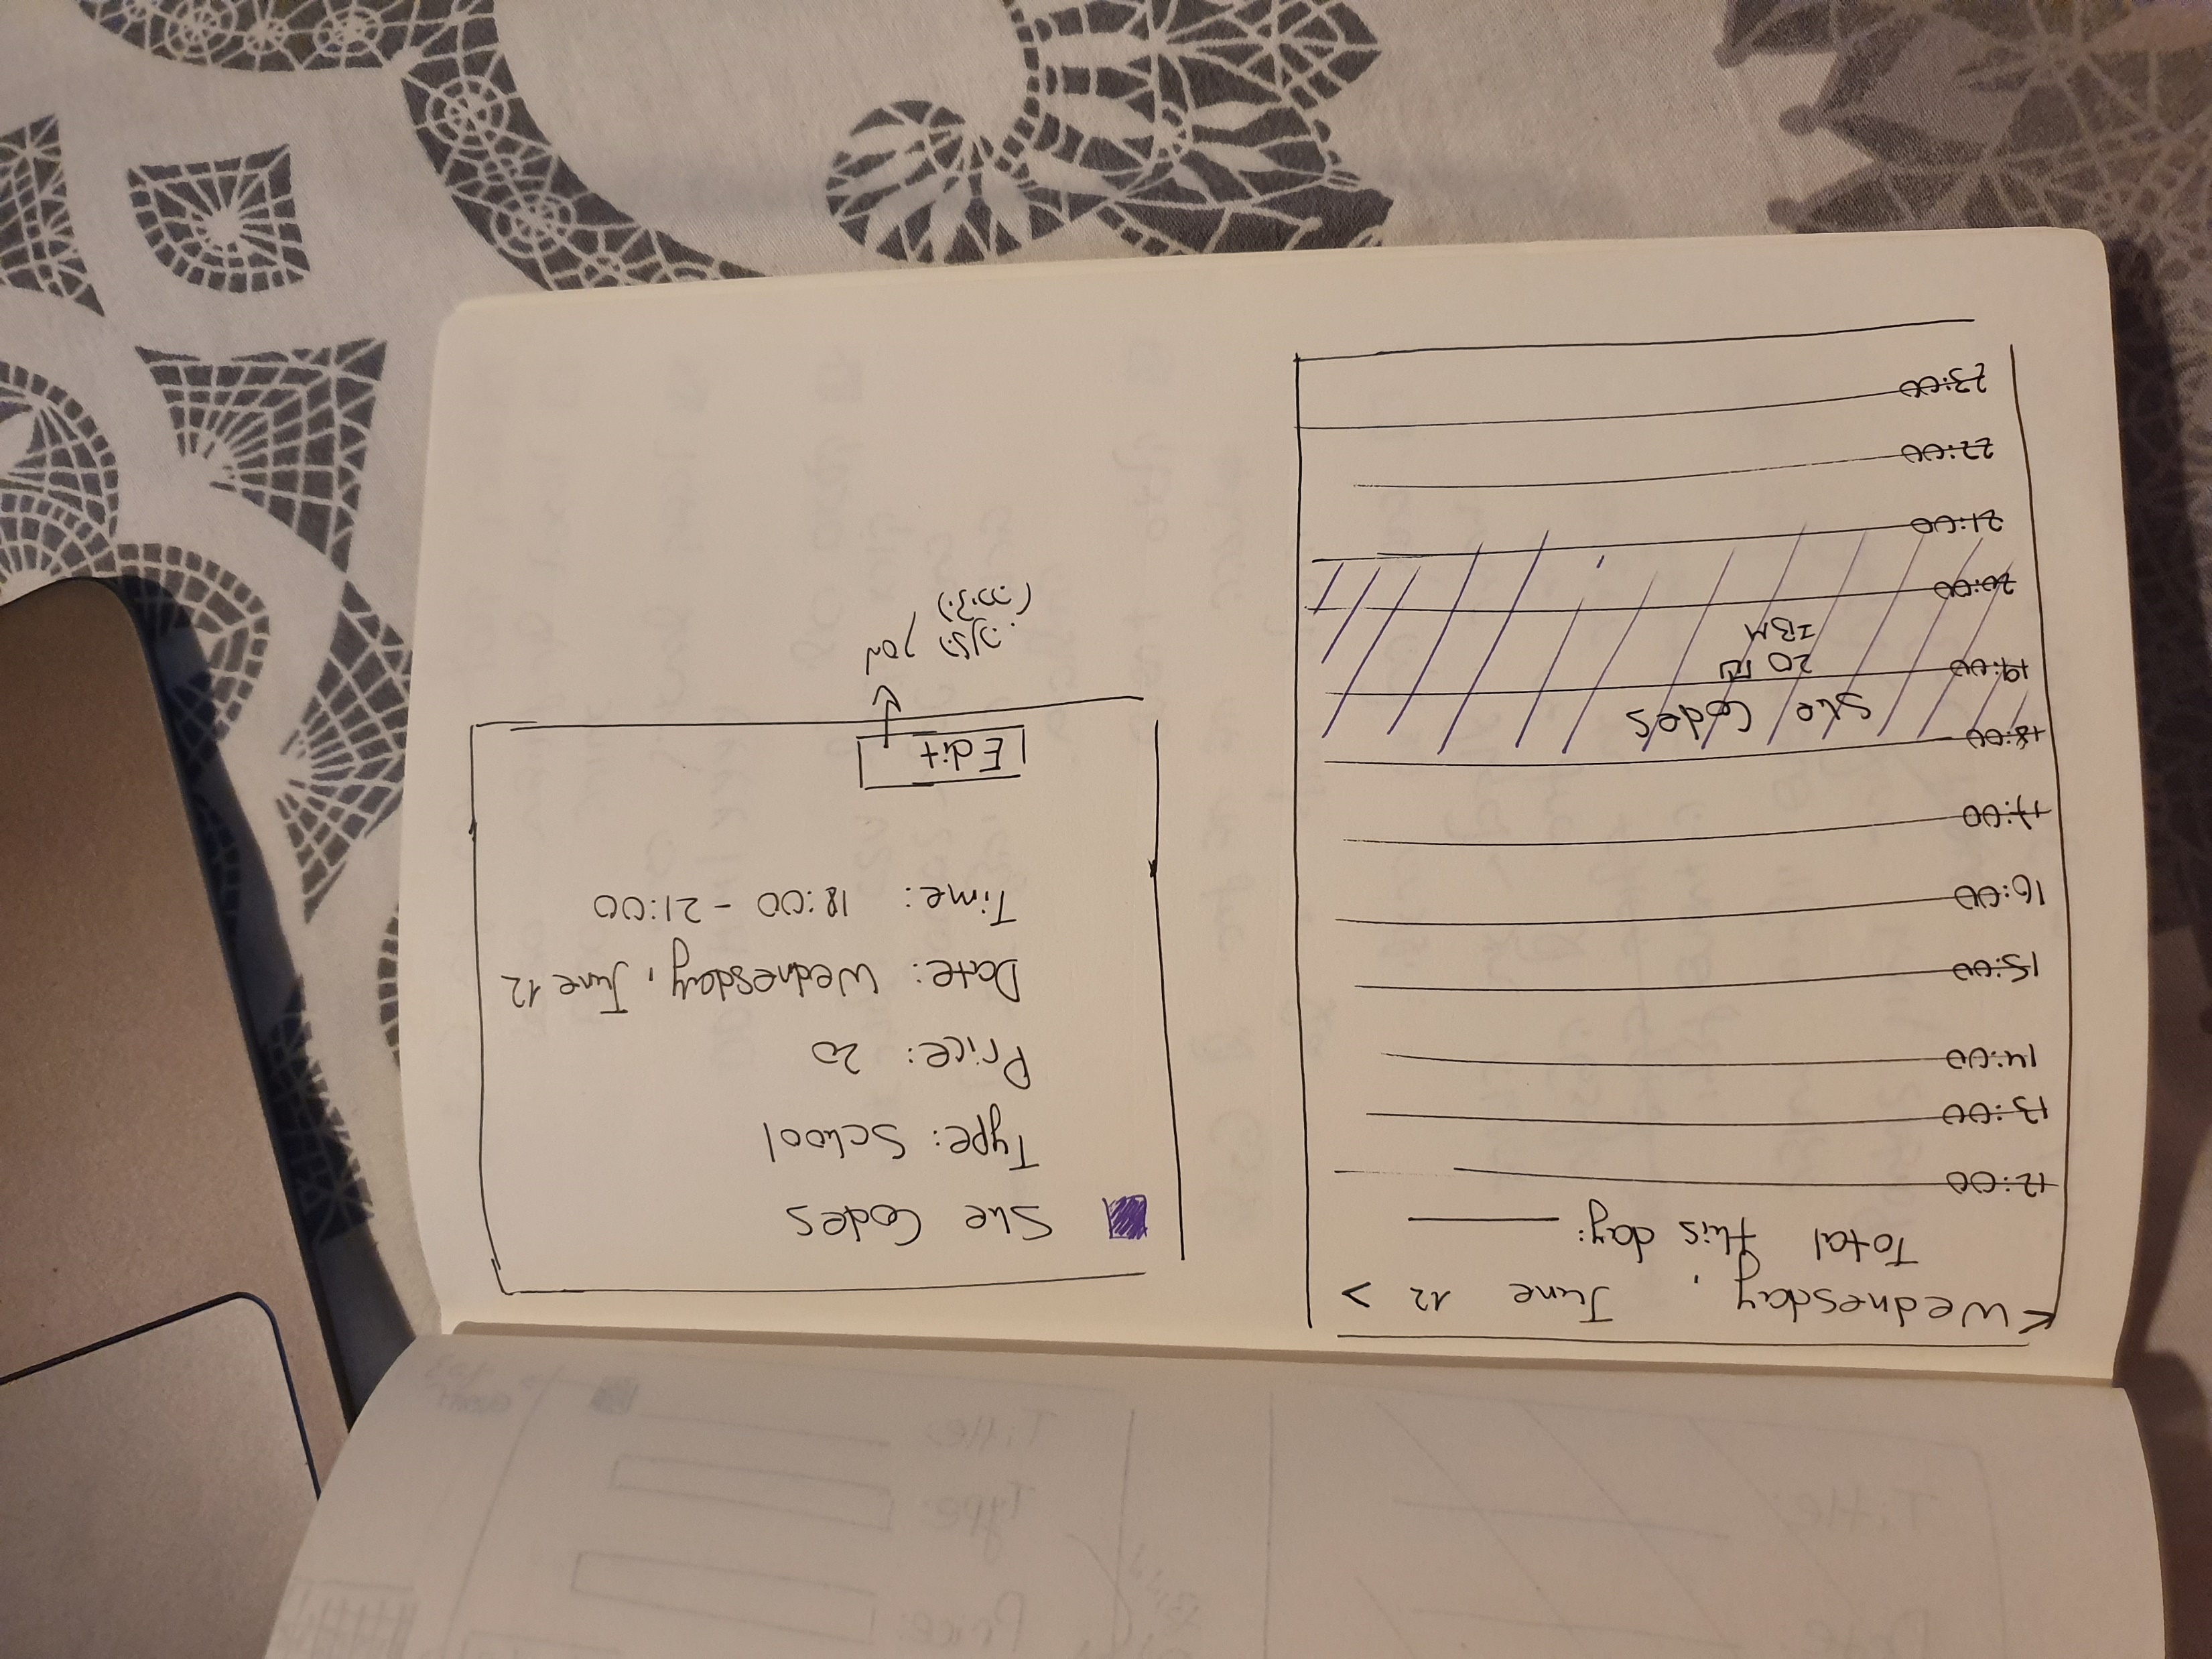 < Wednesday, June 12 >
Total this day:
12:00
13:00
14:00
15:00
16:00
17:00
18:00
She Codes
19:00
20
IBM
20:00
21:00
22:00
23:00
She Codes
Type: School
Price: 20
Date: Wednesday, June 12
Time: 18:00 - 21:00
Edit
Title
Type
Price:
Title:
Date: